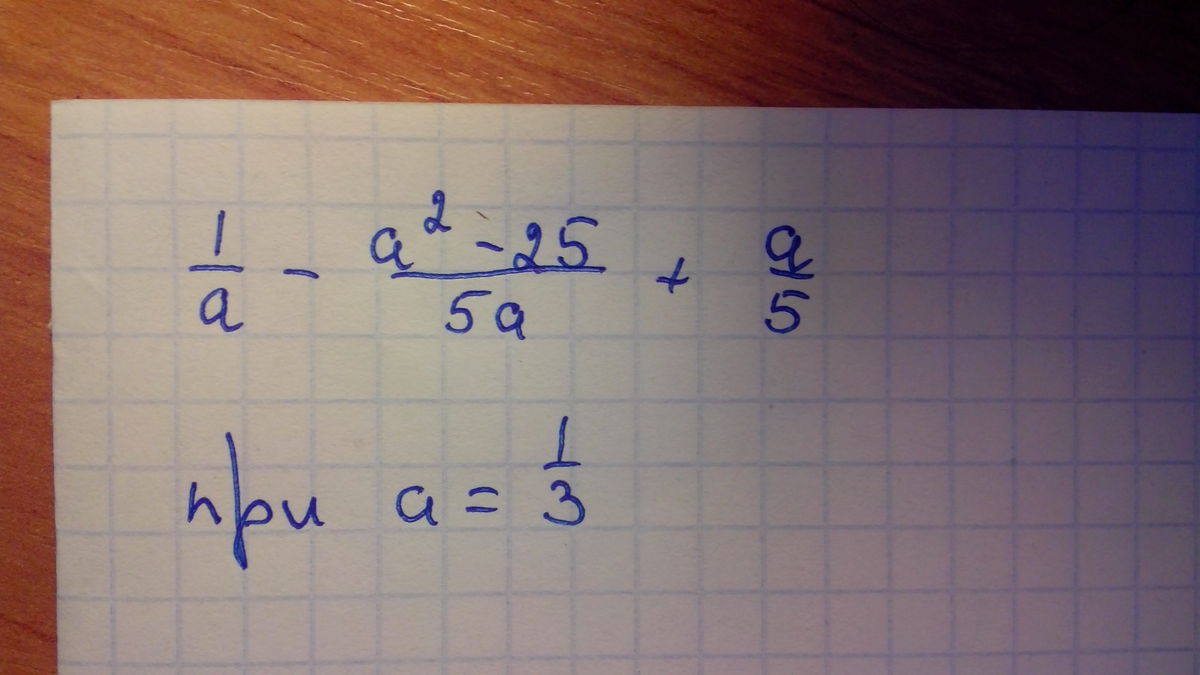 1/a - (a² - 25)/(5a) + a/5
при a = 1/3